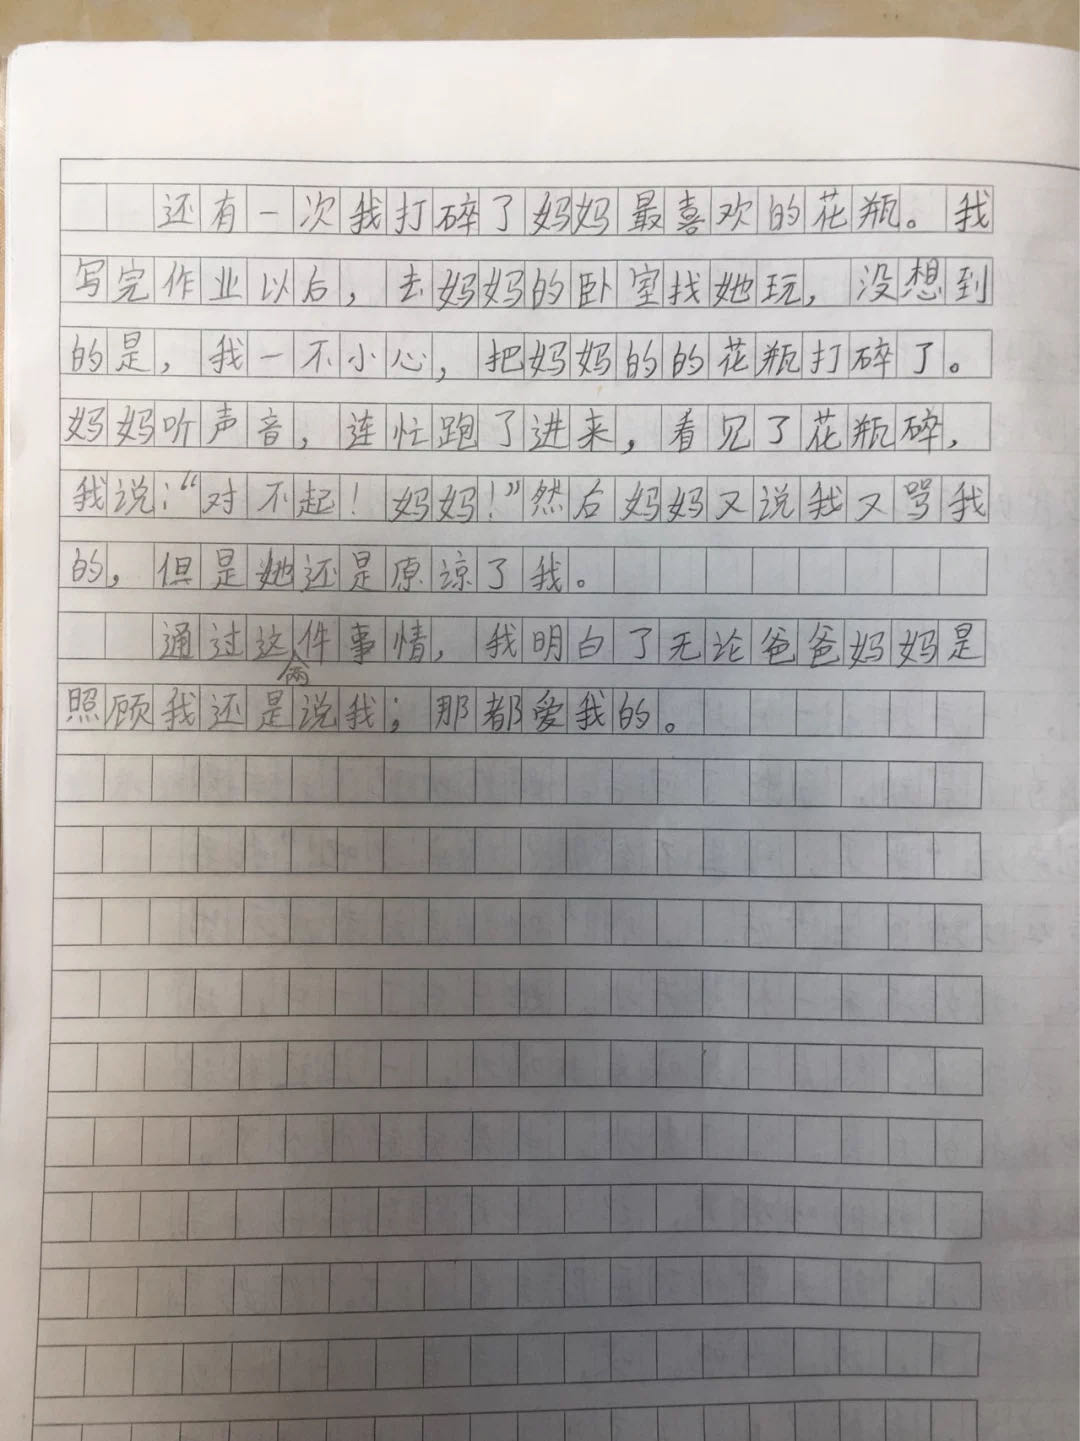 还有一次我打碎了妈妈最喜欢的花瓶。我
写完作业以后，去妈妈的卧室找她玩，没想到
的是，我一不小心，把妈妈的的花瓶打碎了。
妈妈听声音，连忙跑了进来，看见了花瓶碎，
我说：“对不起！妈妈！”然后妈妈又说我又骂我
的，但是她还是原谅了我。
通过这两件事情，我明白了无论爸爸妈妈是
照顾我还是说我；那都爱我的。